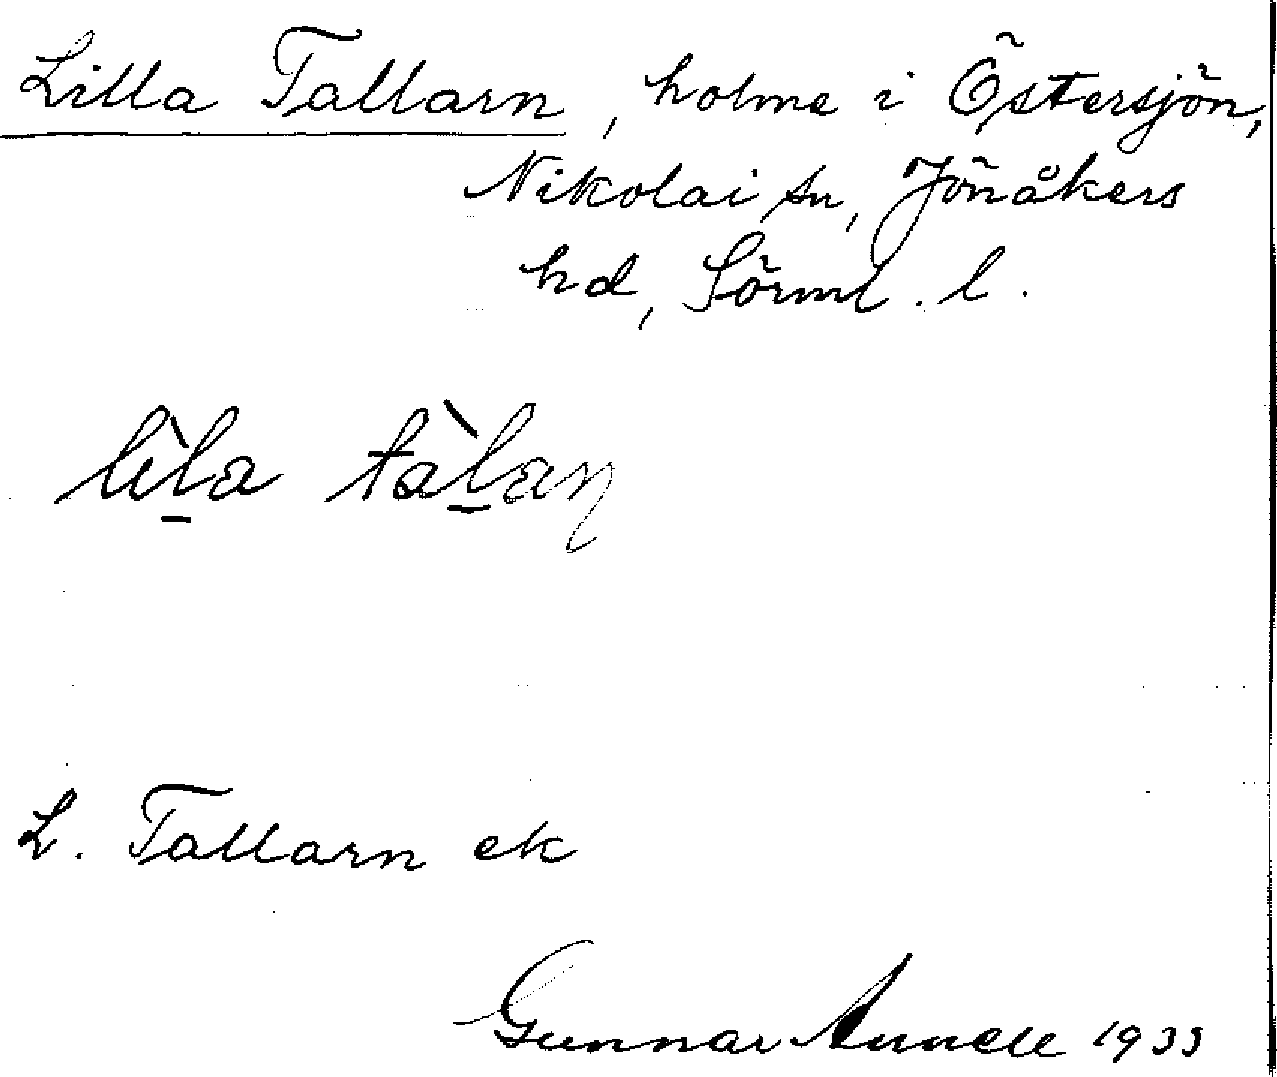 Lilla Tallarn, holme i Östersjön,
Nikolai sn, Jönåkers
hd, Sörml. l.
lìla tàlaɳ
L. Tallarn ek
Gunnar Annell 1933